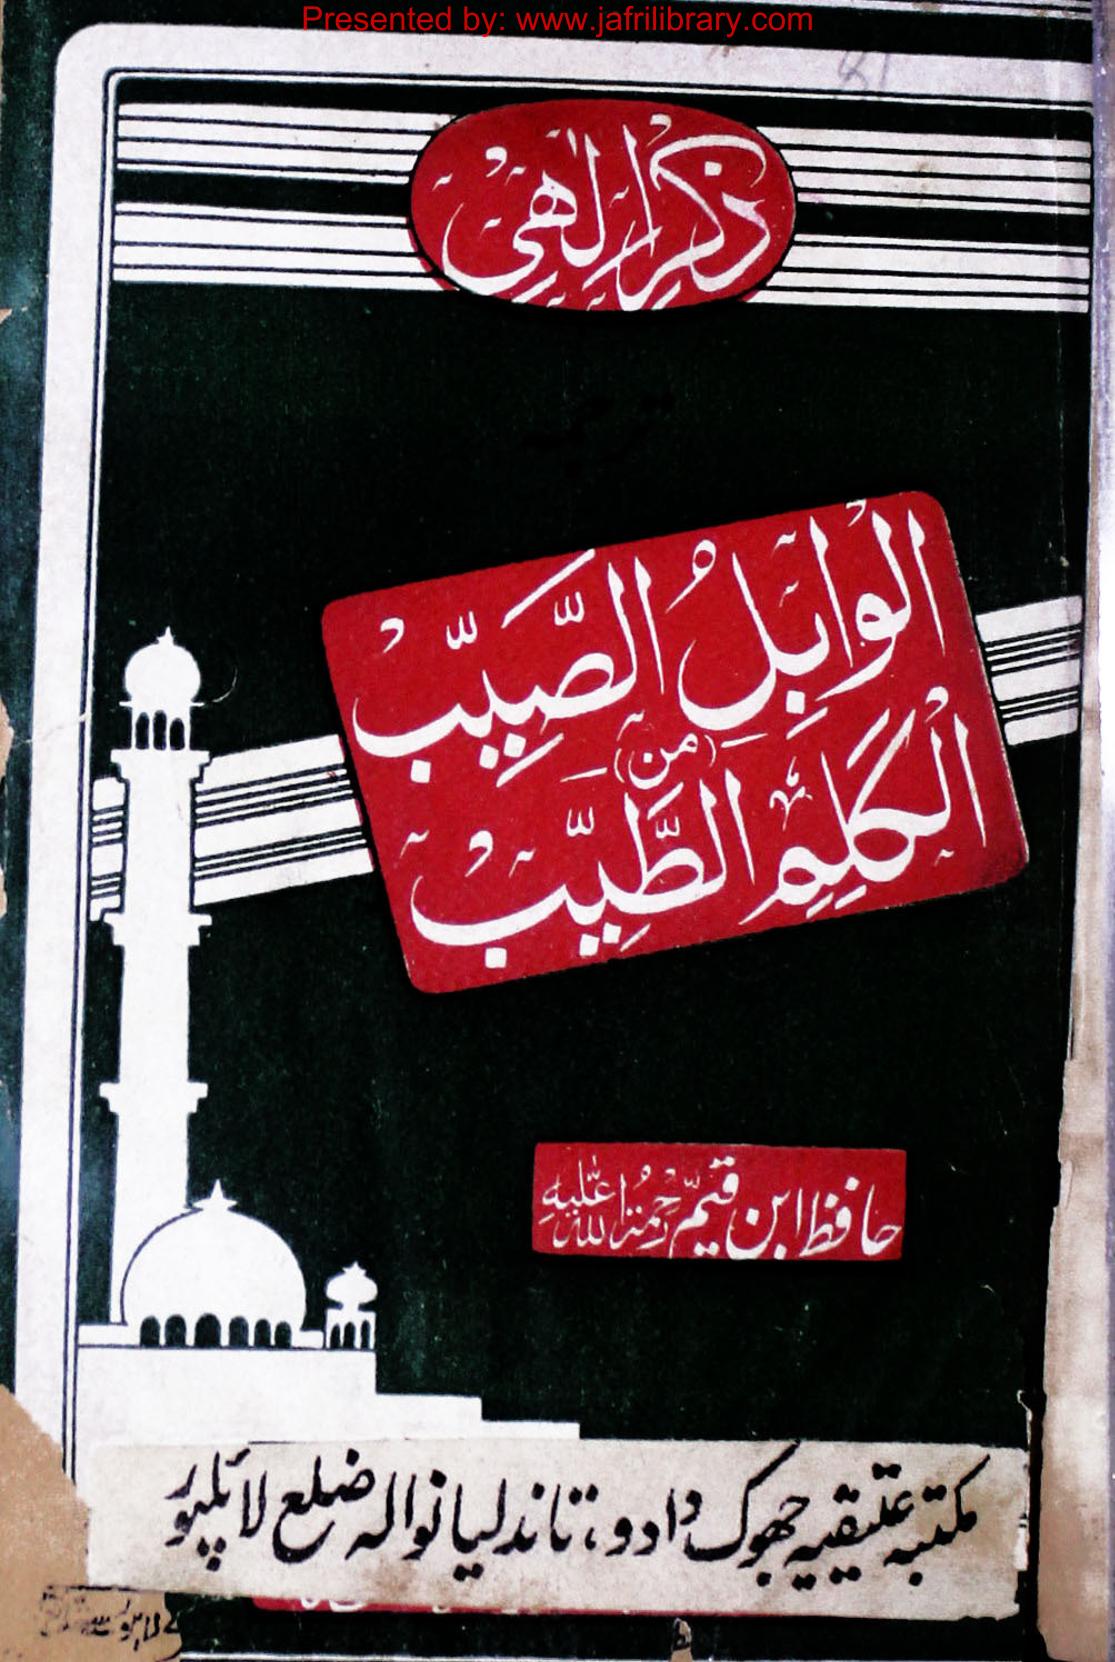 Presented by: www.jafrilibrary.com
ذکرِ الٰہی
ترجمہ
الوابِلُ الصَّیِّبْ
(مِنَ)
الْکَلِمِ الطَّیِّبْ
حافظ ابن قیّم رحمۃ اللہ علیہ
مکتبہ عتیقیہ جھوک دادو، تاندلیانوالہ ضلع لائلپور